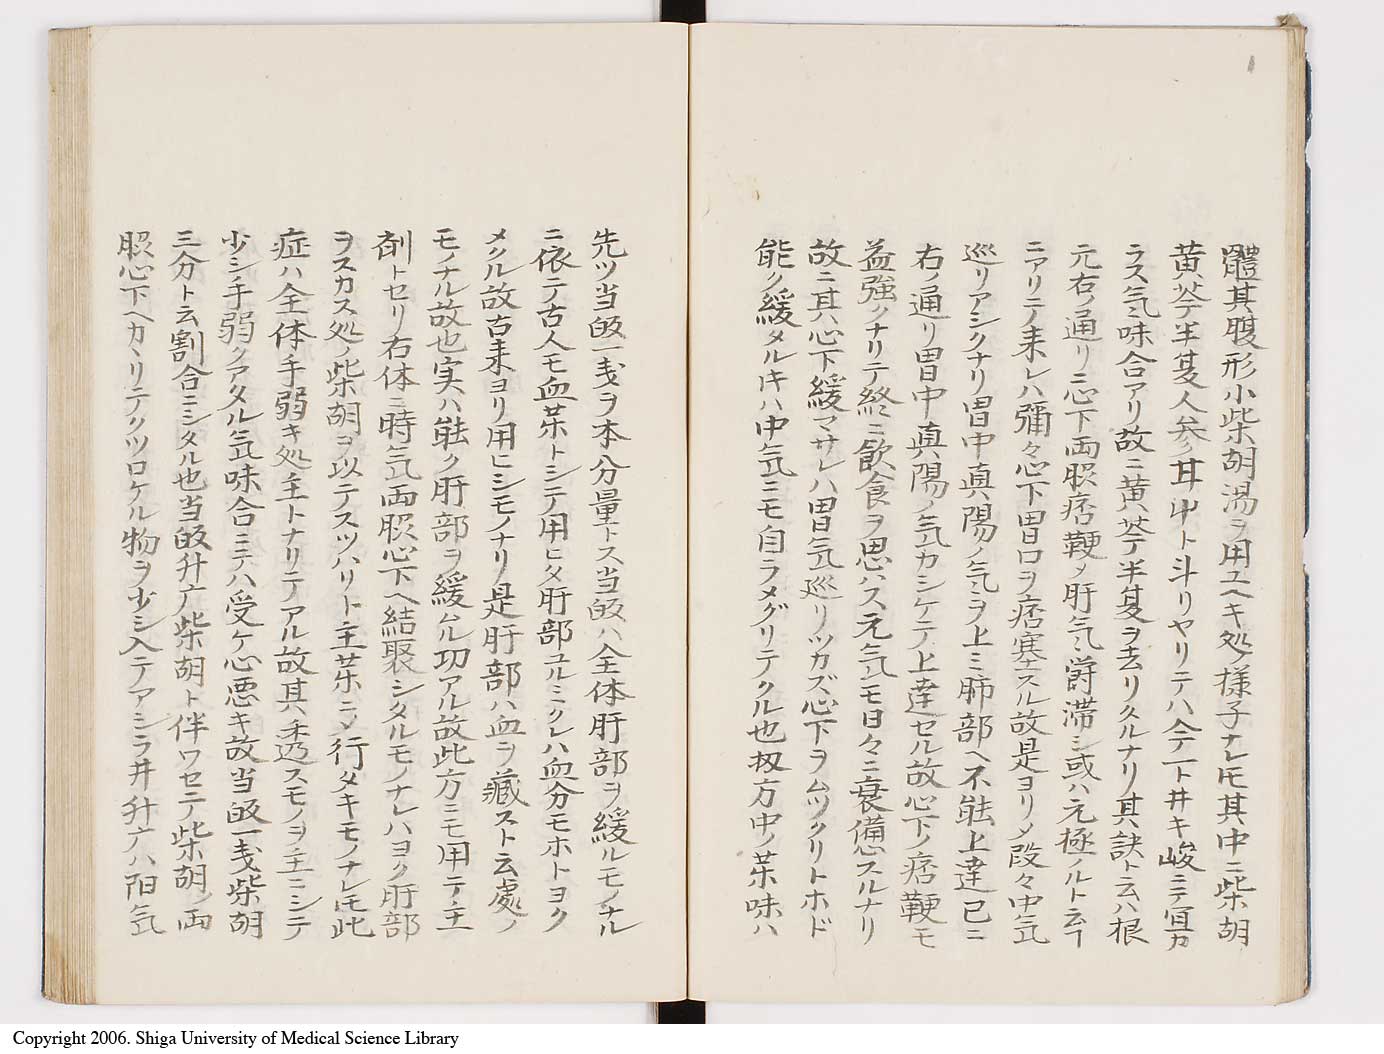 體其腹形小柴胡湯ヲ用ユヘキ処ノ様子ナレ𪜈其中ニ柴胡
黄芩半夏人参ノ耳屮ト斗リヤリテハ今一ト井キ峻ニテ冝カ
ラス気味合アリ故ニ黄芩半夏ヲ去リタルナリ其訣ト云ハ根
元右ノ通リ心下両脇痞鞕メ肝気欝滞シ或ハ亢極ノルト云ヿ
ニアリテ来レハ彌々心下胃口ヲ痞塞スル故是ヨリメ段々中気
巡リアシクナリ胃中真陽ノ気ヲ上ミ肺部ヘ不能上達已ニ
右ノ通リ胃中真陽ノ気カシケテ上達セル故心下ノ痞鞕モ
益強クナリテ終ニ飲食ヲ思ハス元気モ日々ニ衰備スルナリ
故ニ其心下緩マサレハ胃気巡リツカズ心下ヲムツクリトホド
能ク緩タルキハ中気ニモ自ラメグリテクル也扨方中ノ茱味ハ
先ツ当皈一戔ヲ本分量トス当皈ハ全体肝部ヲ緩ルモノナル
ニ依テ古人モ血茱トシテ用ヒタ肝部ユルミクレハ血分モホトヨク
メクル故古来ヨリ用ヒシモノナリ是肝部ハ血ヲ藏スト云處ノ
モノナル故也実ハ能ク肝部ヲ緩ムル功アル故此方ニモ用テ主
剤トセリ右体ニ時気両脇心下ヘ結聚シタルモノナレハヨク肝部
ヲスカス処ノ柴胡ヲ以テスツハリト主茱ニメ行タキモノナレ𪜈此
症ハ全体手弱キ処主トナリテアル故其ハ透スモノヲ主ニシテ
少シ手弱クアタル気味合ニテハ受ケ心悪キ故当皈一戔柴胡
三分ト云割合ニシタル也当皈升广柴胡ト伴ワセテ柴胡ノ両
脇心下ヘカヽリテクツロケル物ヲ少シ入テアシラ井升广ハ阳気
Copyright 2006. Shiga University of Medical Science Library